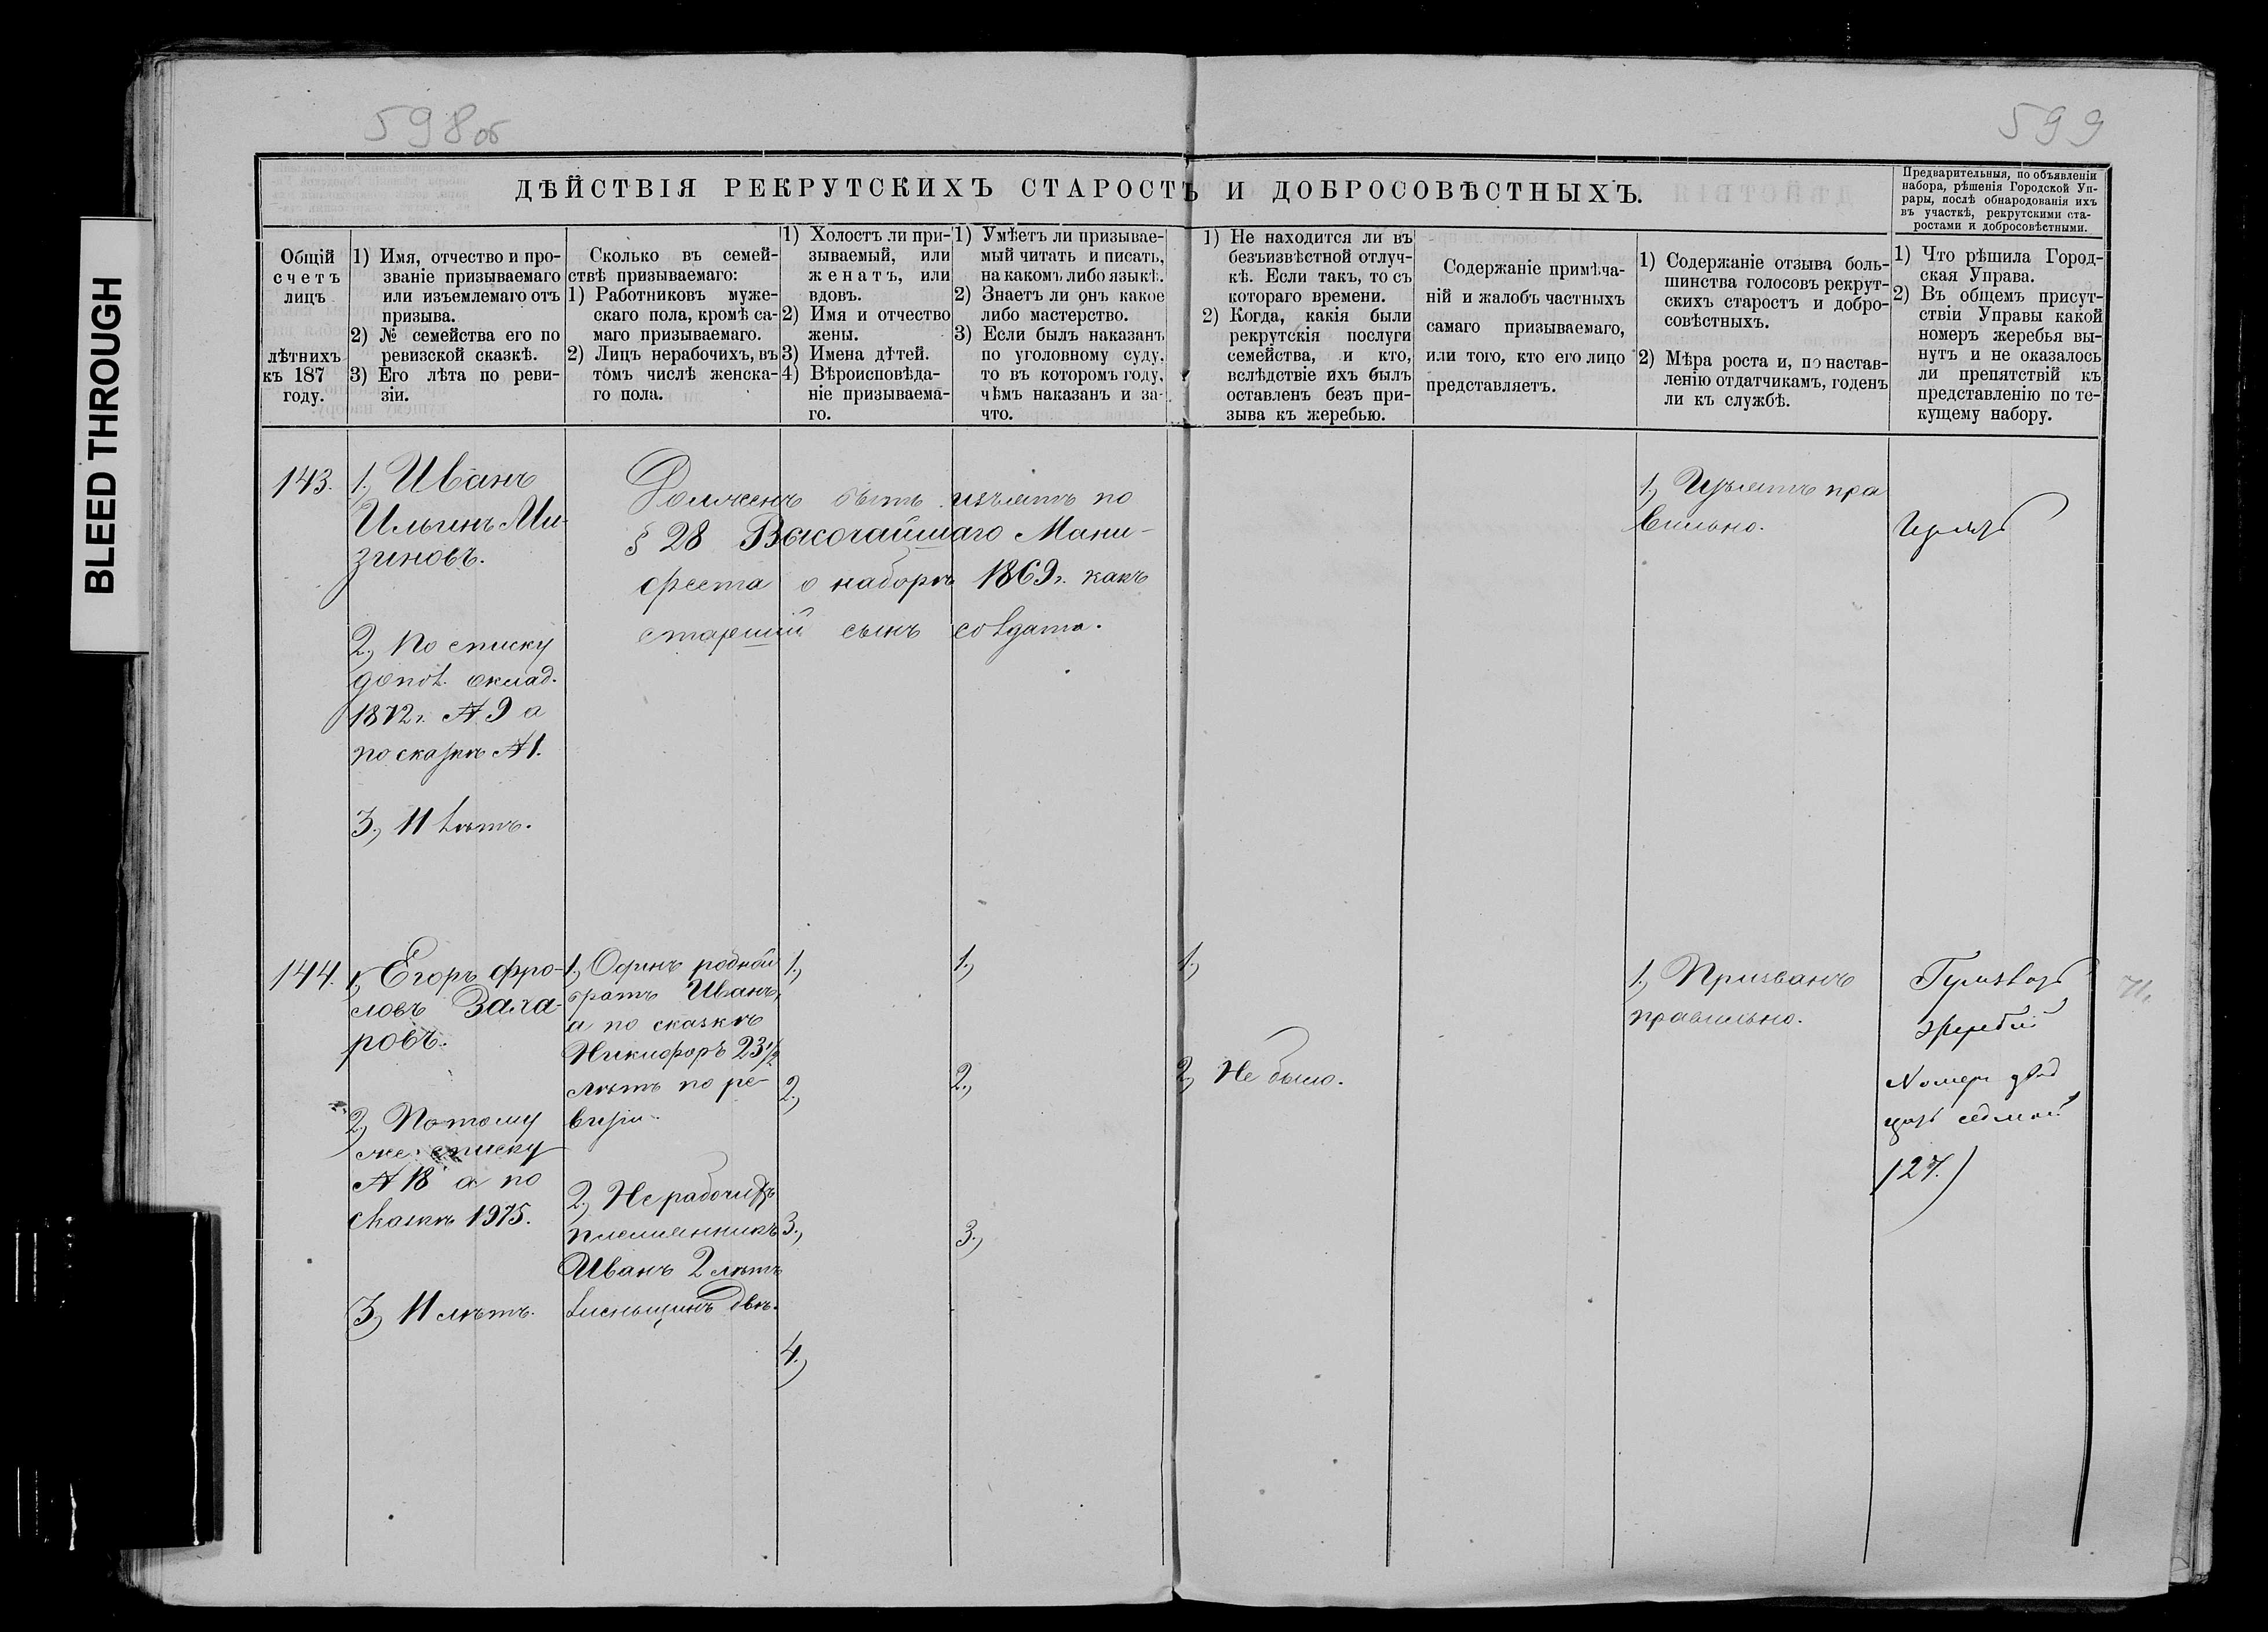 598об
599
BLEED THROUGH
ДѢЙСТВІЯ РЕКРУТСКИХЪ СТАРОСТЪ И ДОБРОСОВѢСТНЫХЪ.
Предварительныя, по объявленіи
набора, рѣшенія Городской Уп-
рары, послѣ обнародованія ихъ
въ участкѣ, рекрутскими ста-
ростами и добросовѣстными.
Общій
счетъ
лицъ
лѣтнихъ
къ 187
году.
1) Имя, отчество и про-
званіе призываемаго
или изъемлемаго отъ
призыва.
2) № семейства его по
ревизской сказкѣ.
3) Его лѣта по реви-
зіи.
Сколько въ семей-
ствѣ призываемаго:
1) Работниковъ муже-
скаго пола, кромѣ са-
маго призываемаго.
2) Лицъ нерабочихъ, въ
томъ числѣ женска-
го пола.
1) Холостъ ли при-
зываемый, или
женатъ, или
вдовъ.
2) Имя и отчество
жены.
3) Имена дѣтей.
4) Вѣроисповѣда-
ніе призываема-
го.
1) Умѣетъ ли призывае-
мый читать и писать,
на какомъ либо языкѣ.
2) Знаетъ ли онъ какое
либо мастерство.
3) Если былъ наказанъ
по уголовному суду,
то въ которомъ году,
чѣмъ наказанъ и за
что.
1) Не находится ли въ
безъизвѣстной отлуч-
кѣ. Если такъ, то съ
котораго времени.
2) Когда, какія были
рекрутскія послуги
семейства, и кто,
вслѣдствіе ихъ былъ
оставленъ безъ при-
зыва къ жеребью.
Содержаніе примѣча-
ній и жалобъ частныхъ
самаго призываемаго,
или того, кто его лицо
представляетъ.
1) Содержаніе отзыва боль-
шинства голосовъ рекрут-
скихъ старостъ и добро-
совѣстныхъ.
2) Мѣра роста и, по настав-
ленію отдатчикамъ, годенъ
ли къ службѣ.
1) Что рѣшила Город-
ская Управа.
2) Въ общемъ присут-
ствіи Управы какой
номеръ жеребья вы-
нутъ и не оказалось
ли препятствій къ
представленію по те-
кущему набору.
143.
1., Иванъ
Ильинъ Ми-
зиновъ.
2., По списку
допол. оклад.
1872г. № 9 а
по сказкѣ № 1.
3., 11 лѣтъ.
Долженъ быть изъятъ по
§ 28 Высочайшаго Мани-
феста о наборѣ 1869г. какъ
старшій сынъ солдата.
1., Изъятъ пра
вильно.
Изъять
144.
1., Егоръ Фро-
ловъ Заха-
ровъ.
2., По тому
же списку
№ 18 а по
сказкѣ 1975.
3., 11 лѣтъ.
1., Одинъ родной
братъ Иванъ,
а по сказкѣ
Никифоръ 23½
лѣтъ по ре-
визіи.
2., Не рабочихъ
племянникъ
Иванъ 2 лѣтъ
женщинъ двѣ.
1.,
2.,
3.,
4.,
1.,
2.,
3.,
1.,
2., Не было.
1., Призванъ
правильно.
Призвать
жребій
Номеръ двад
цать седмой
(27.)